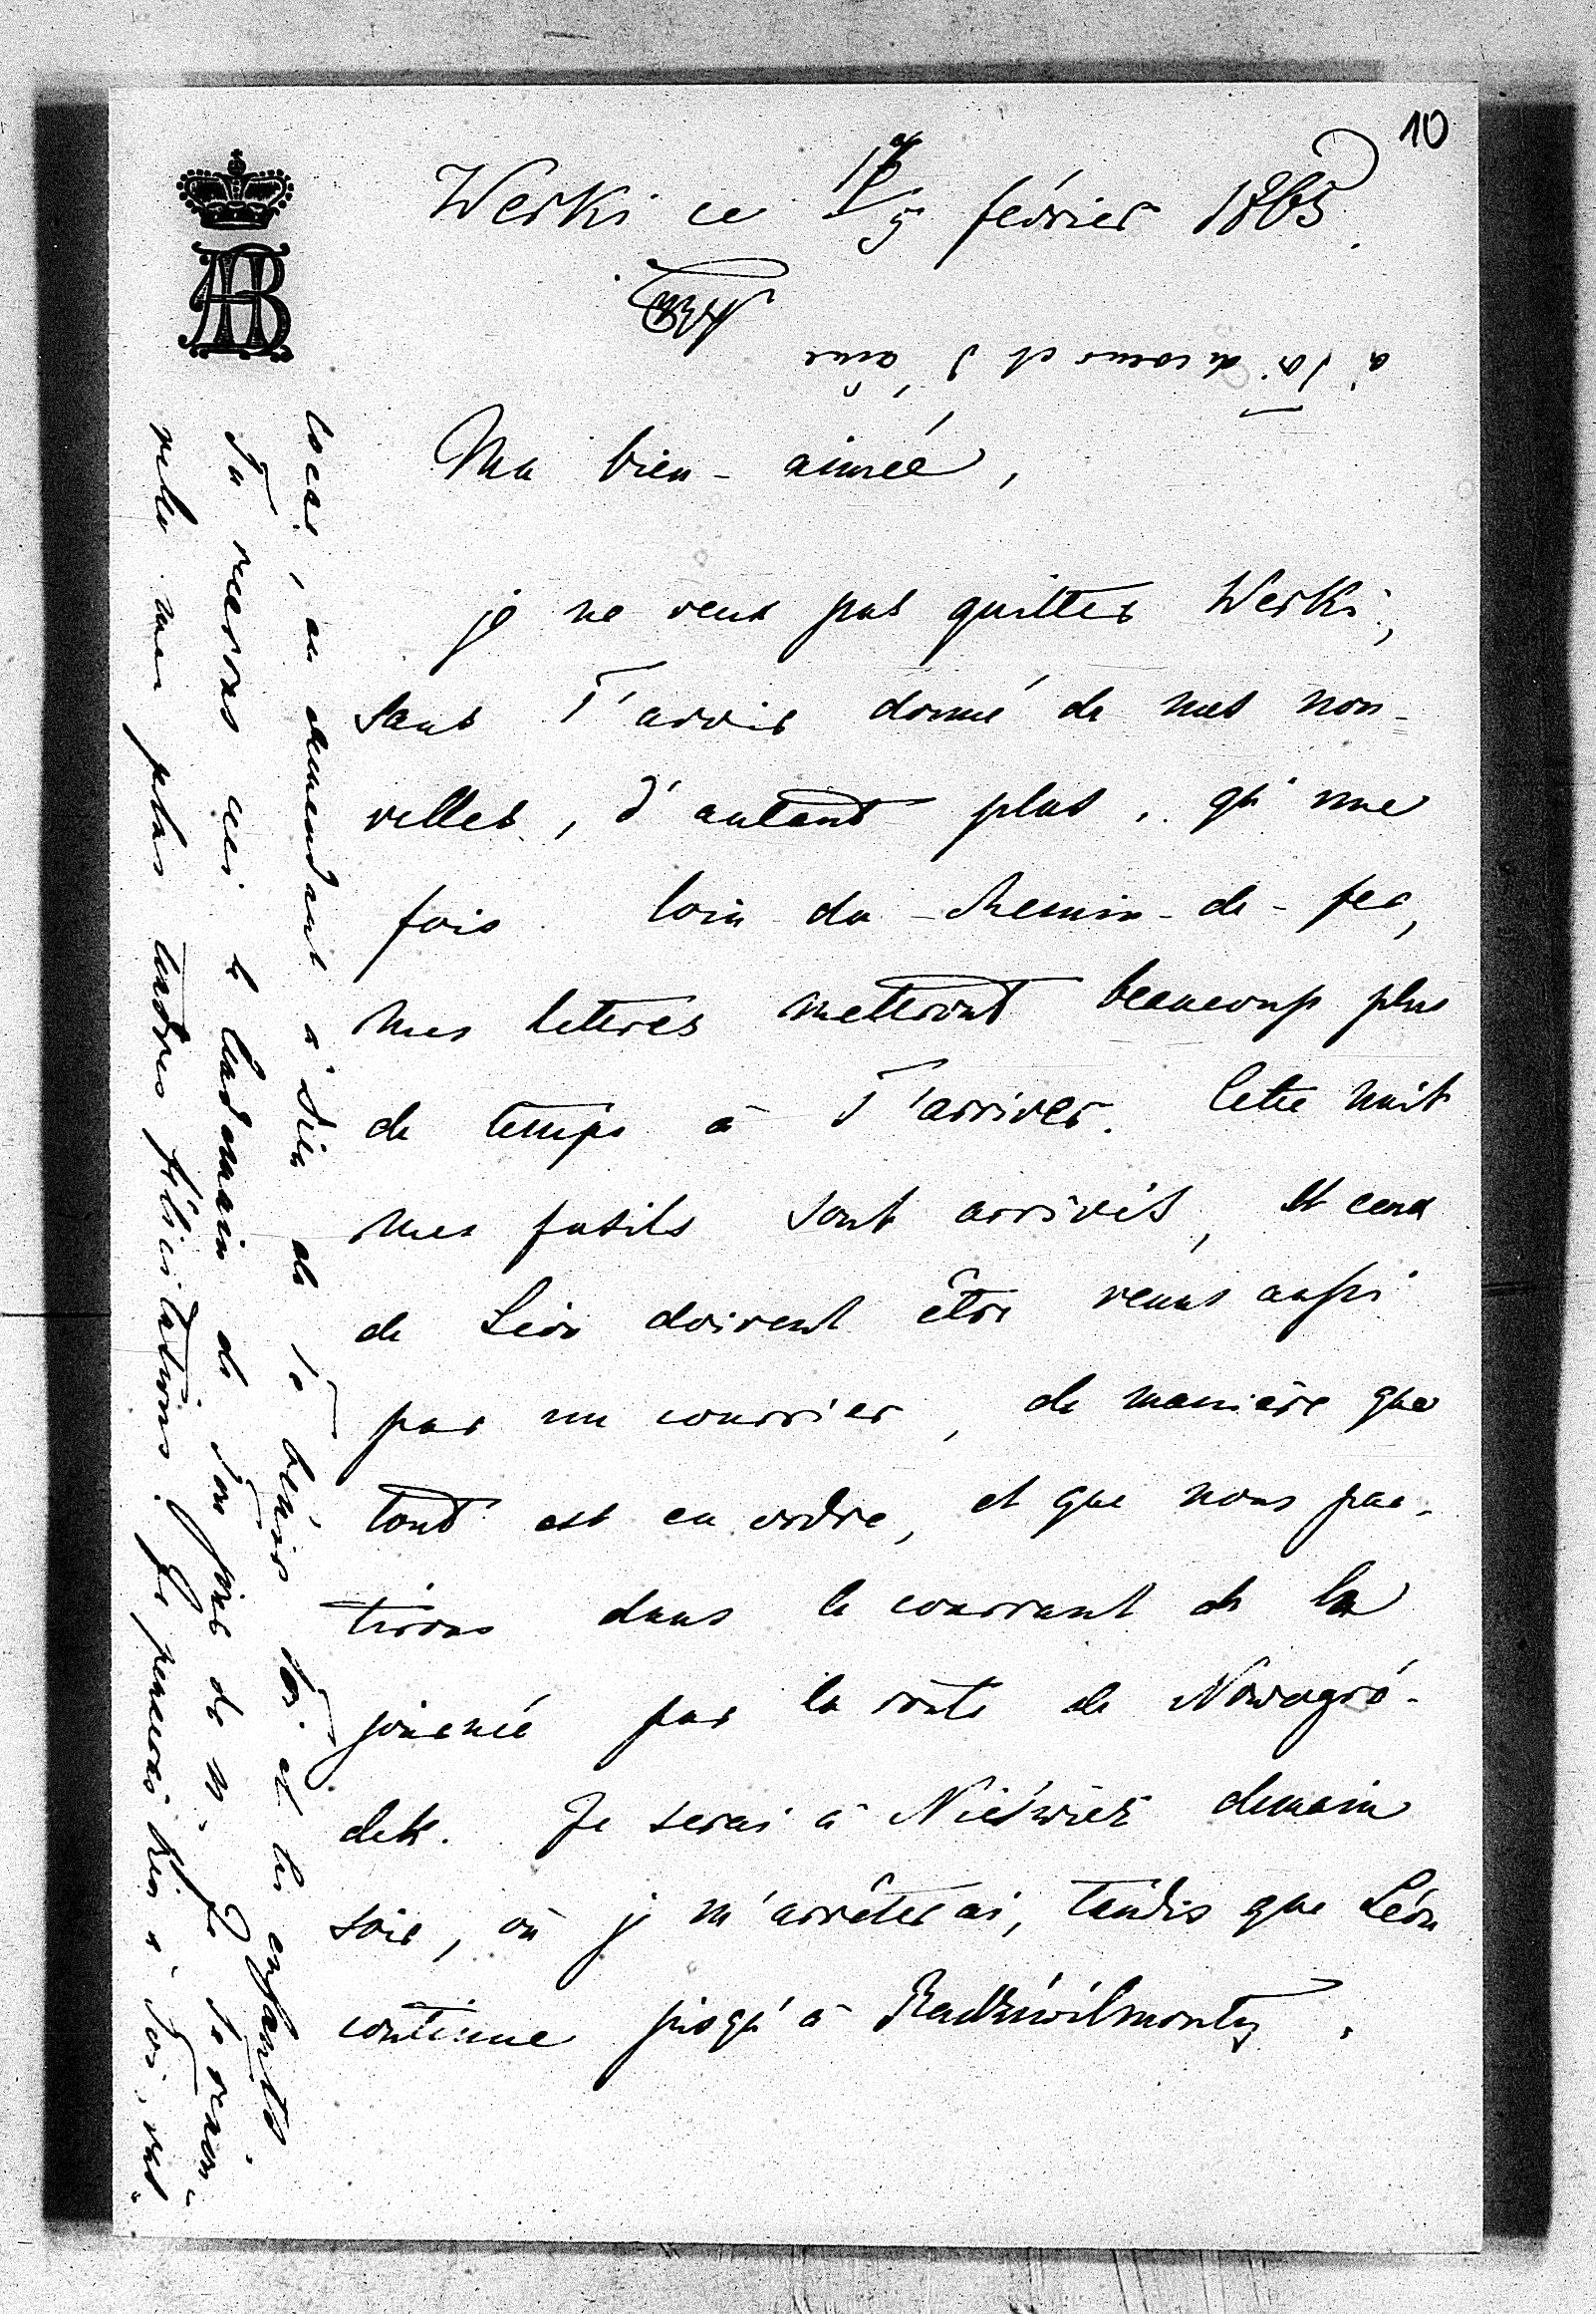 10
Werki ce 17/5 février 1865.
Ma bien-aimée,
je ne veux pas quitter Werki,
sans T'avoir donné de mes nou-
velles, d'autant plus, qu'une
fois loin du chemin-de-fer,
mes lettres mettront beaucoup plus
de temps à T'arriver. Cette nuit
mes fusils sont arrivés, et ceux
de Léon doivent être venus aussi
par un courrier, de manière que
tout est en ordre, et que nous par-
tirons dans le courrant de la
journée par la route de Nowogró-
dek. Je serai à Nieświeź demain
soir, où je m'arrêterai, tandis que Léon
continue jusqu'à Radziwiłmonty.
coeur, en demandant à Dieu de Te bénir Toi et les enfants
Tu recevras ceci le lendemain de Ton jour de n. Je Te renou-
velle mes plus tendres félicitations. Je penserai bien à Toi,
à Toi de coeur et d'âme